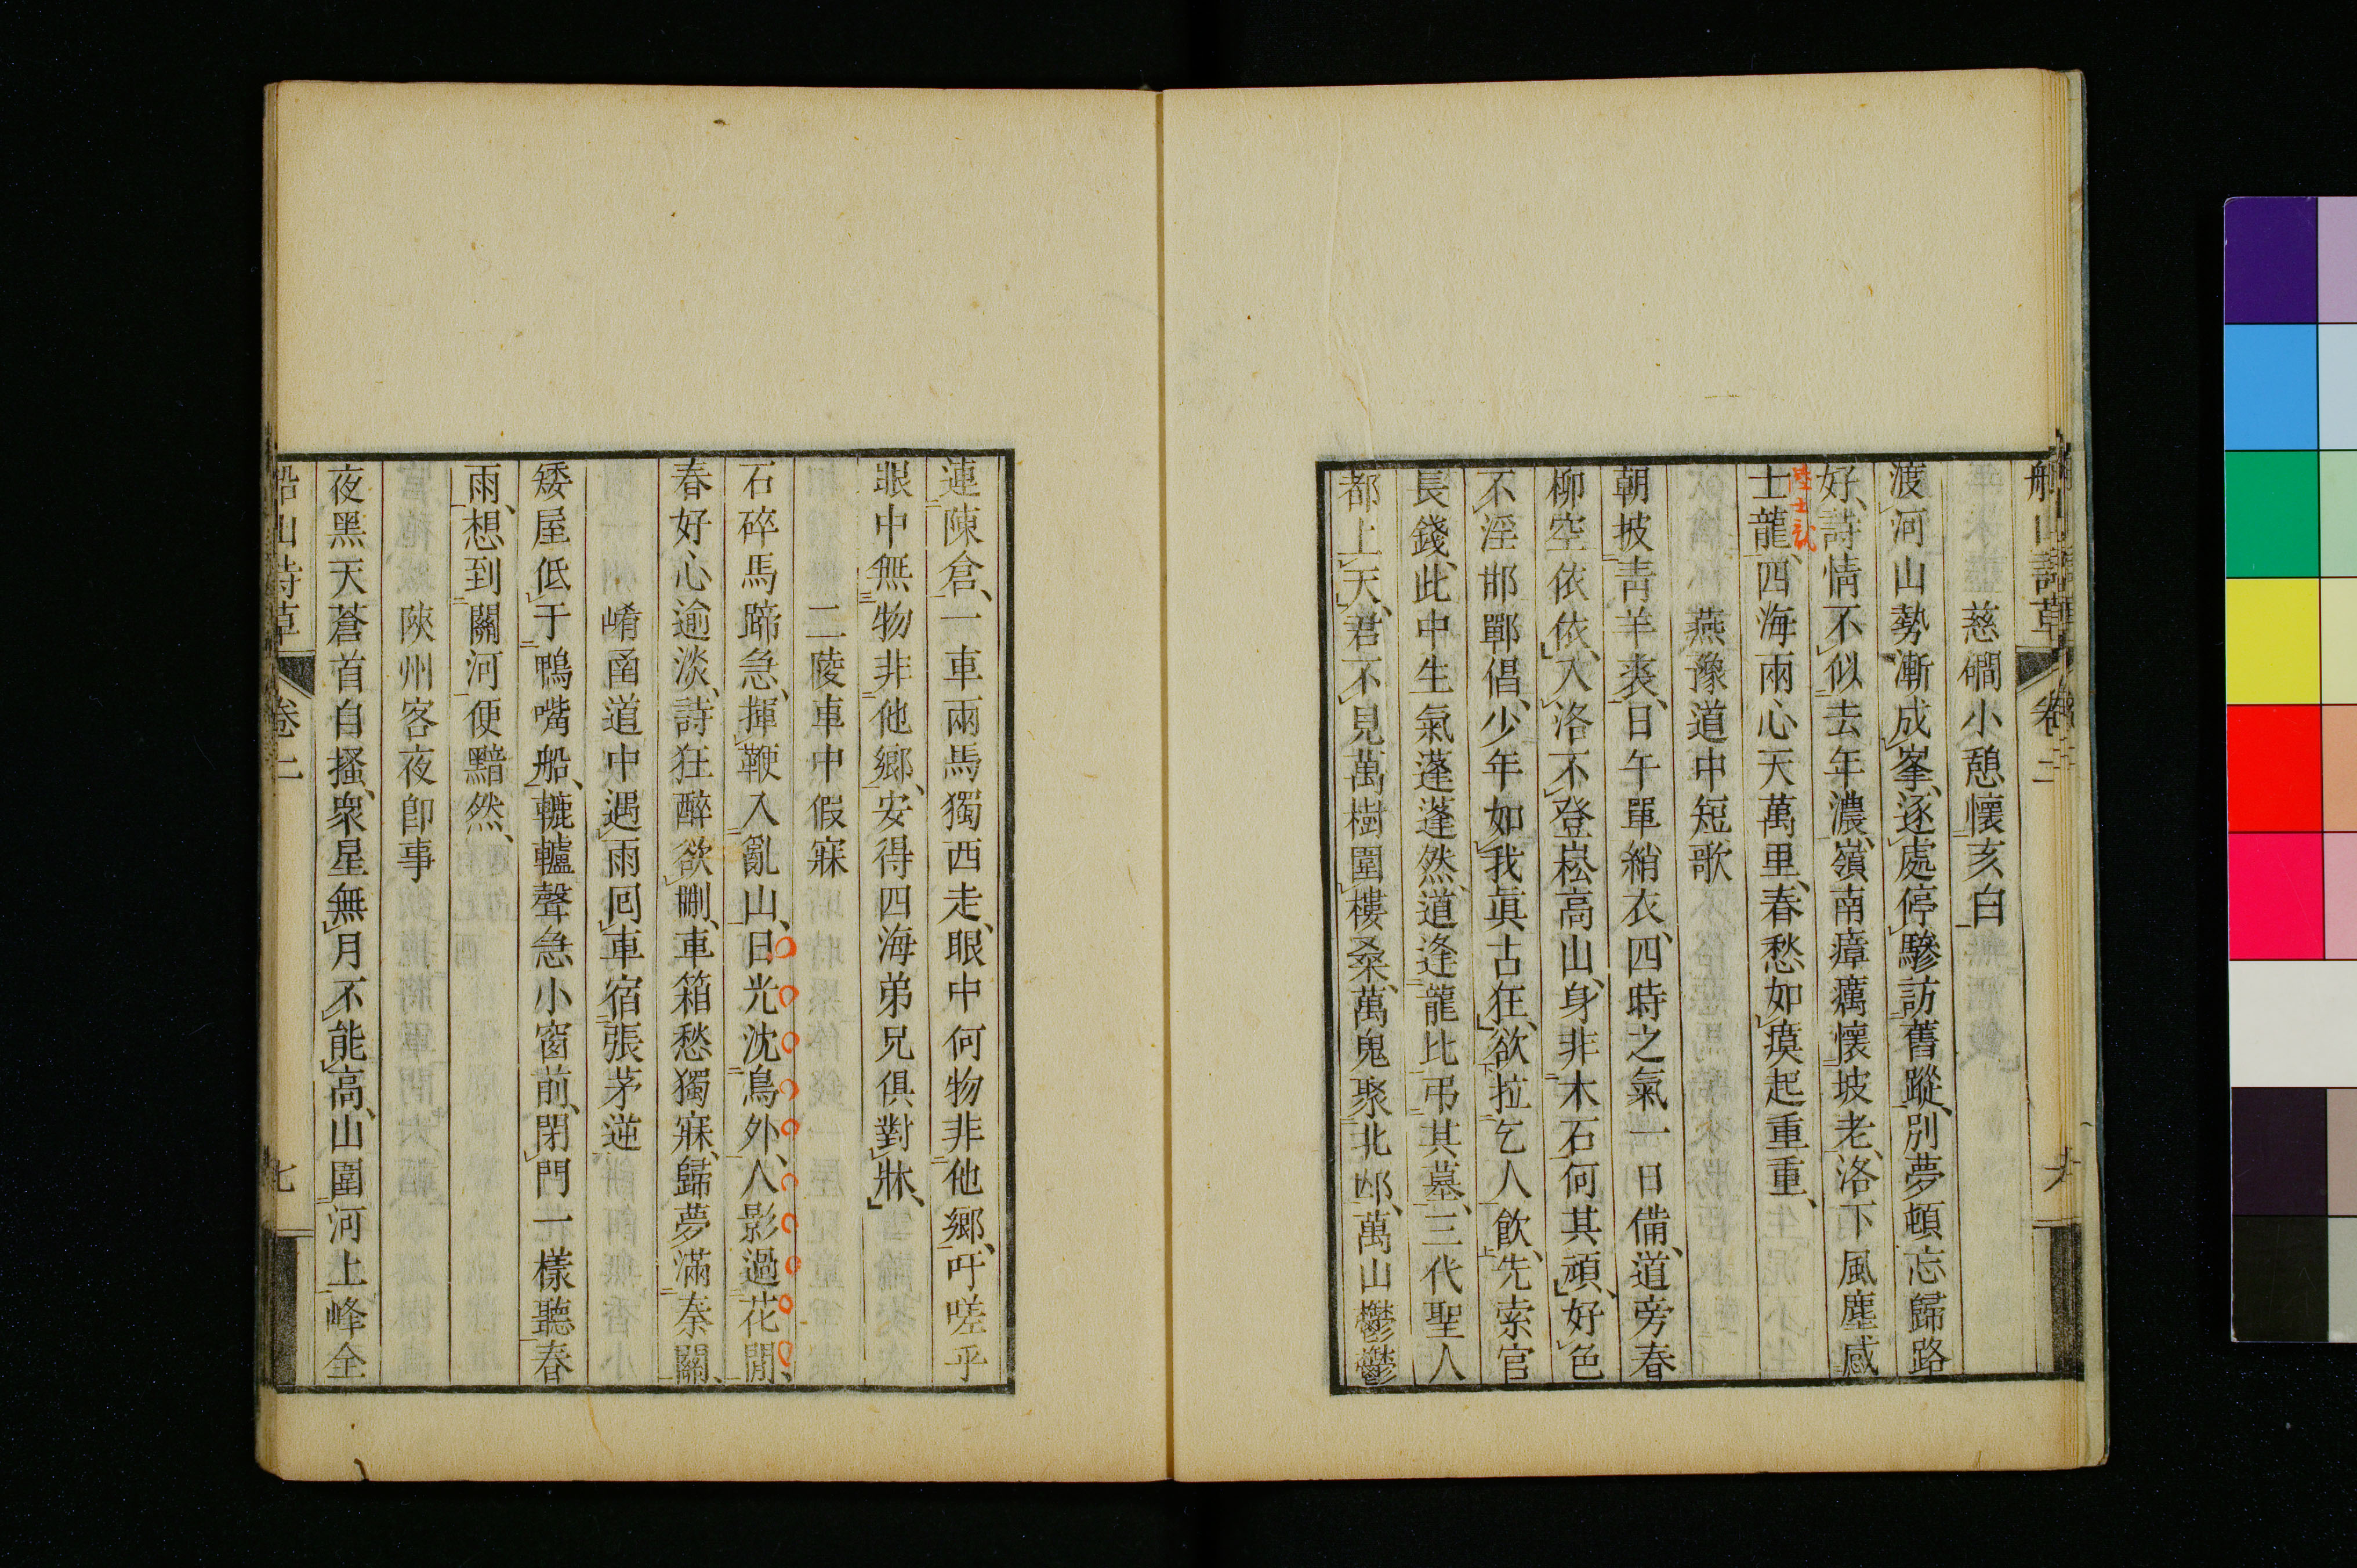 船山詩草 卷二
慈磵小憩懷亥白
渡河山勢漸成峯、逐處停驂訪舊蹤、別夢頓忘歸路
好、詩情不似去年濃、嶺南瘴癘懷坡老、洛下風塵感
士龍、四海兩心天萬里、春愁如瘼起重重、
陸士龍
燕豫道中短歌
朝披靑羊裘、日午單綃衣、四時之氣一日備、道旁春
柳空依依、入洛不登崧高山、身非木石何其頑、好色
不淫邯鄲倡、少年如我眞古狂、欲拉乞人飲、先索官
長錢、此中生氣蓬蓬然、道逢龍比弔其墓、三代聖人
都上天、君不見萬樹圍樓桑、萬鬼聚北邙、萬山鬱鬱
連陳倉、一車兩馬獨西走、眼中何物非他鄉、吁嗟乎
眼中無物非他鄉、安得四海弟兄俱對牀、
二陵車中假寐
石碎馬蹄急、揮鞭入亂山、日光沈鳥外、人影過花閒、
春好心逾淡、詩狂醉欲刪、車箱愁獨寐、歸夢滿秦關、
崤函道中遇雨回車宿張茅逆
矮屋低于鴨嘴船、轆轤聲急小窗前、閉門一樣聽春
雨、想到關河便黯然、
陝州客夜卽事
夜黑天蒼首自搔、衆星無月不能高、山圍河上峰全
船山詩草 卷二 七